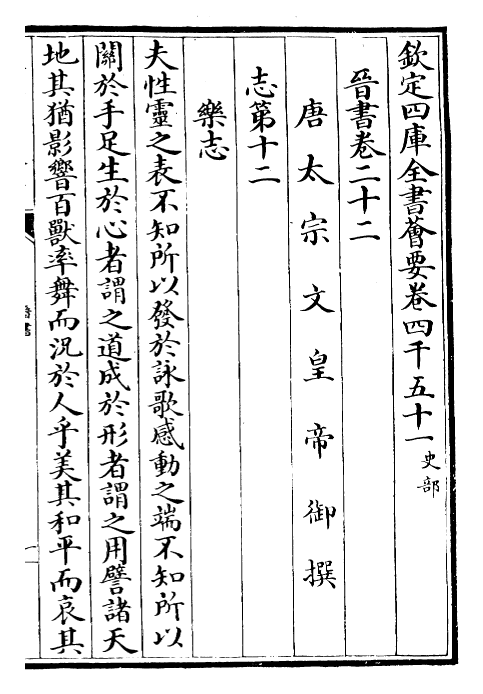 欽定四庫全書薈要卷四千五十一史部
晉書卷二十二
唐太宗文皇帝御撰
志第十二
樂志
夫性靈之表不知所以發於詠歌感動之端不知所以
關於手足生於心者謂之道成於形者謂之用譬諸天
地其猶影響百獸率舞而況於人乎美其和平而哀其